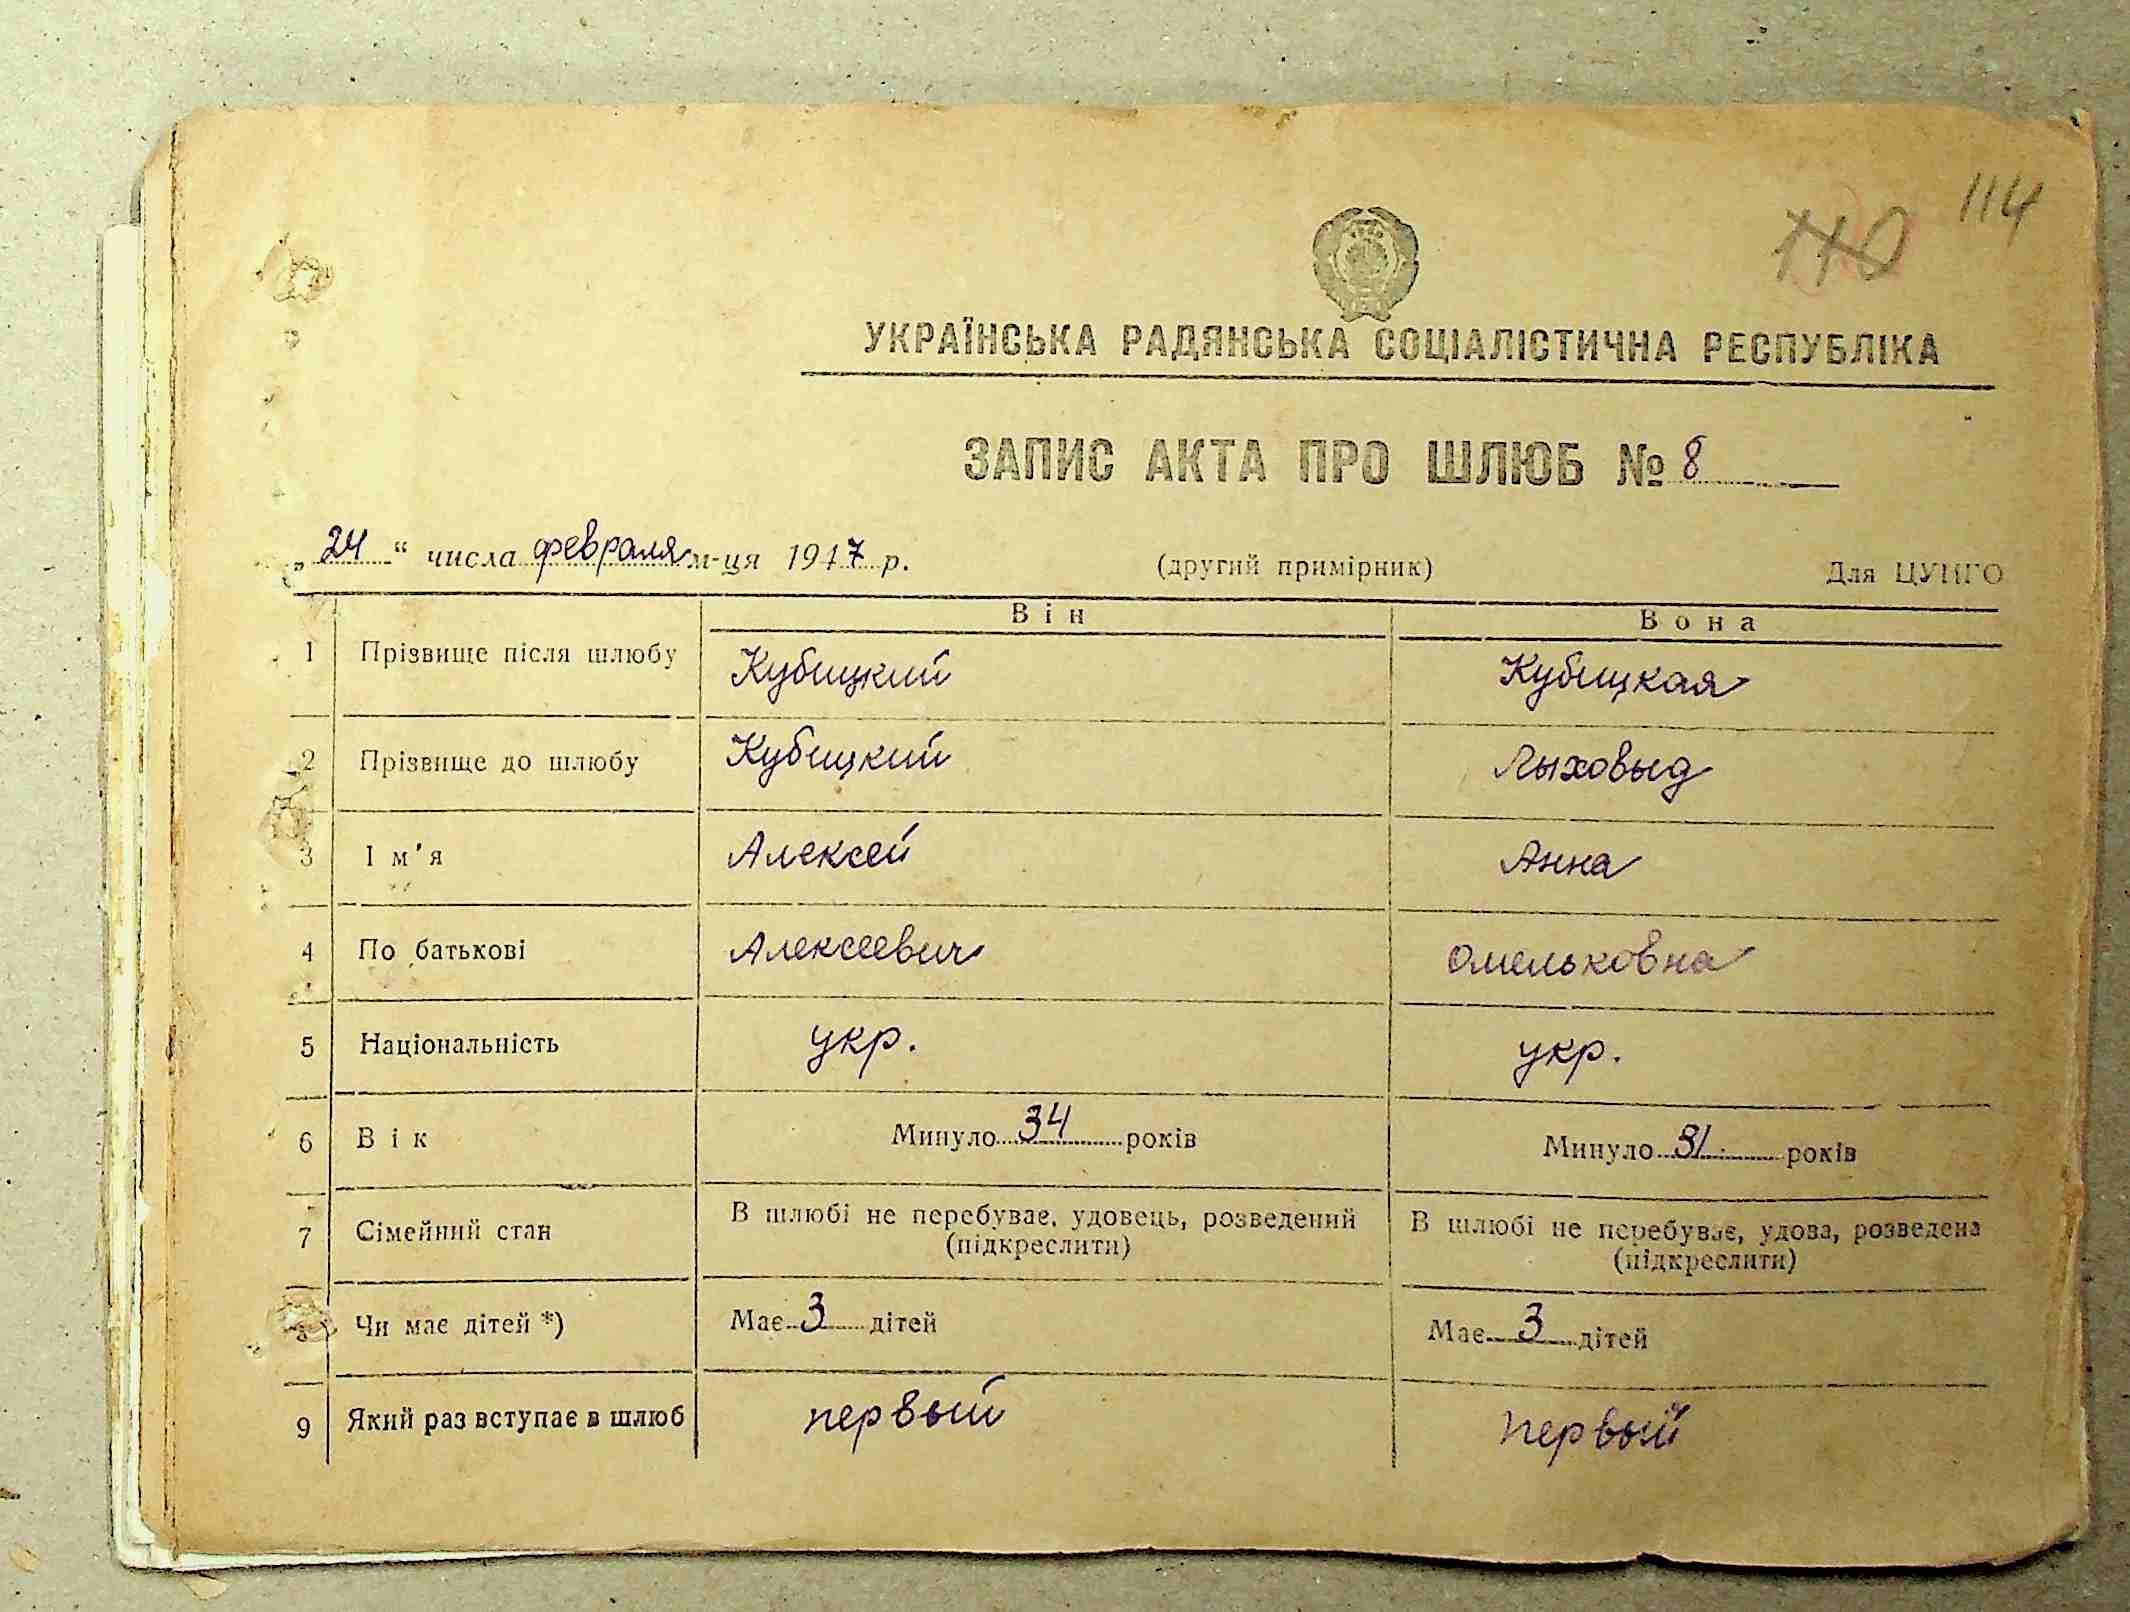 114
110
УКРАЇНСЬКА РАДЯНСЬКА СОЦІАЛІСТИЧНА РЕСПУБЛІКА
ЗАПИС АКТА ПРО ШЛЮБ № 8
„24“ числа февраля м-ця 1947 р. (другий примірник) Для ЦУНГО
Він Вона
1 Прізвище після шлюбу Кубицкий Кубицкая
2 Прізвище до шлюбу Кубицкий Лыховыд
3 Ім'я Алексей Анна
4 По батькові Алексеевич Омельковна
5 Національність укр. укр.
6 Вік Минуло 34 років Минуло 31 років
7 Сімейний стан В шлюбі не перебуває, удовець, розведений (підкреслити) В шлюбі не перебуває, удова, розведена (підкреслити)
8 Чи має дітей *) Має 3 дітей Має 3 дітей
9 Який раз вступає в шлюб первый первый